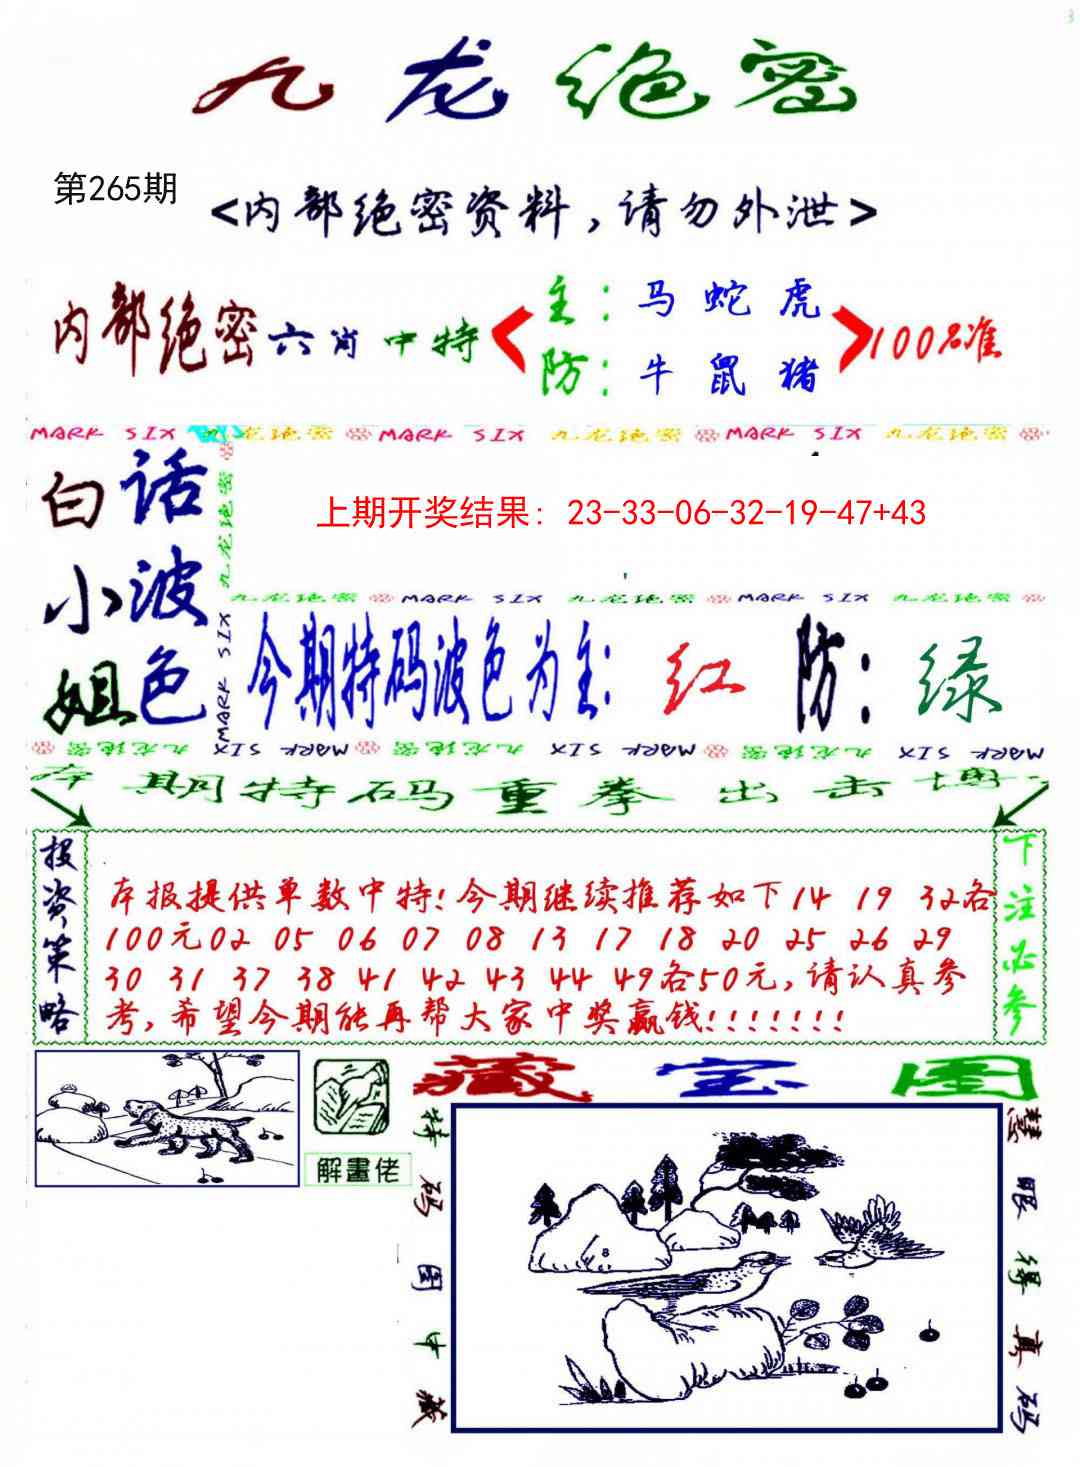 九龙绝密
第265期
<内部绝密资料,请勿外泄>
内部绝密六肖中特
主:马 蛇 虎
防:牛 鼠 猪
100%准
MARK SIX 九龙绝密 MARK SIX 九龙绝密 MARK SIX 九龙绝密
白话
小波
姐色
九龙绝密
MARK SIX
上期开奖结果: 23-33-06-32-19-47+43
九龙绝密 MARK SIX 九龙绝密 MARK SIX 九龙绝密
今期特码波色为主: 红 防: 绿
九龙绝密 MARK SIX 九龙绝密 MARK SIX 九龙绝密 MARK SIX
本期特码重拳出击博
投资策略
本报提供单数中特!今期继续推荐如下14 19 32各
100元02 05 06 07 08 13 17 18 20 25 26 29
30 31 37 38 41 42 43 44 49各50元,请认真参
考,希望今期能再帮大家中奖赢钱!!!!!!!
下注必参
解畫佬
藏宝图
特码图中藏
慧眼得真码